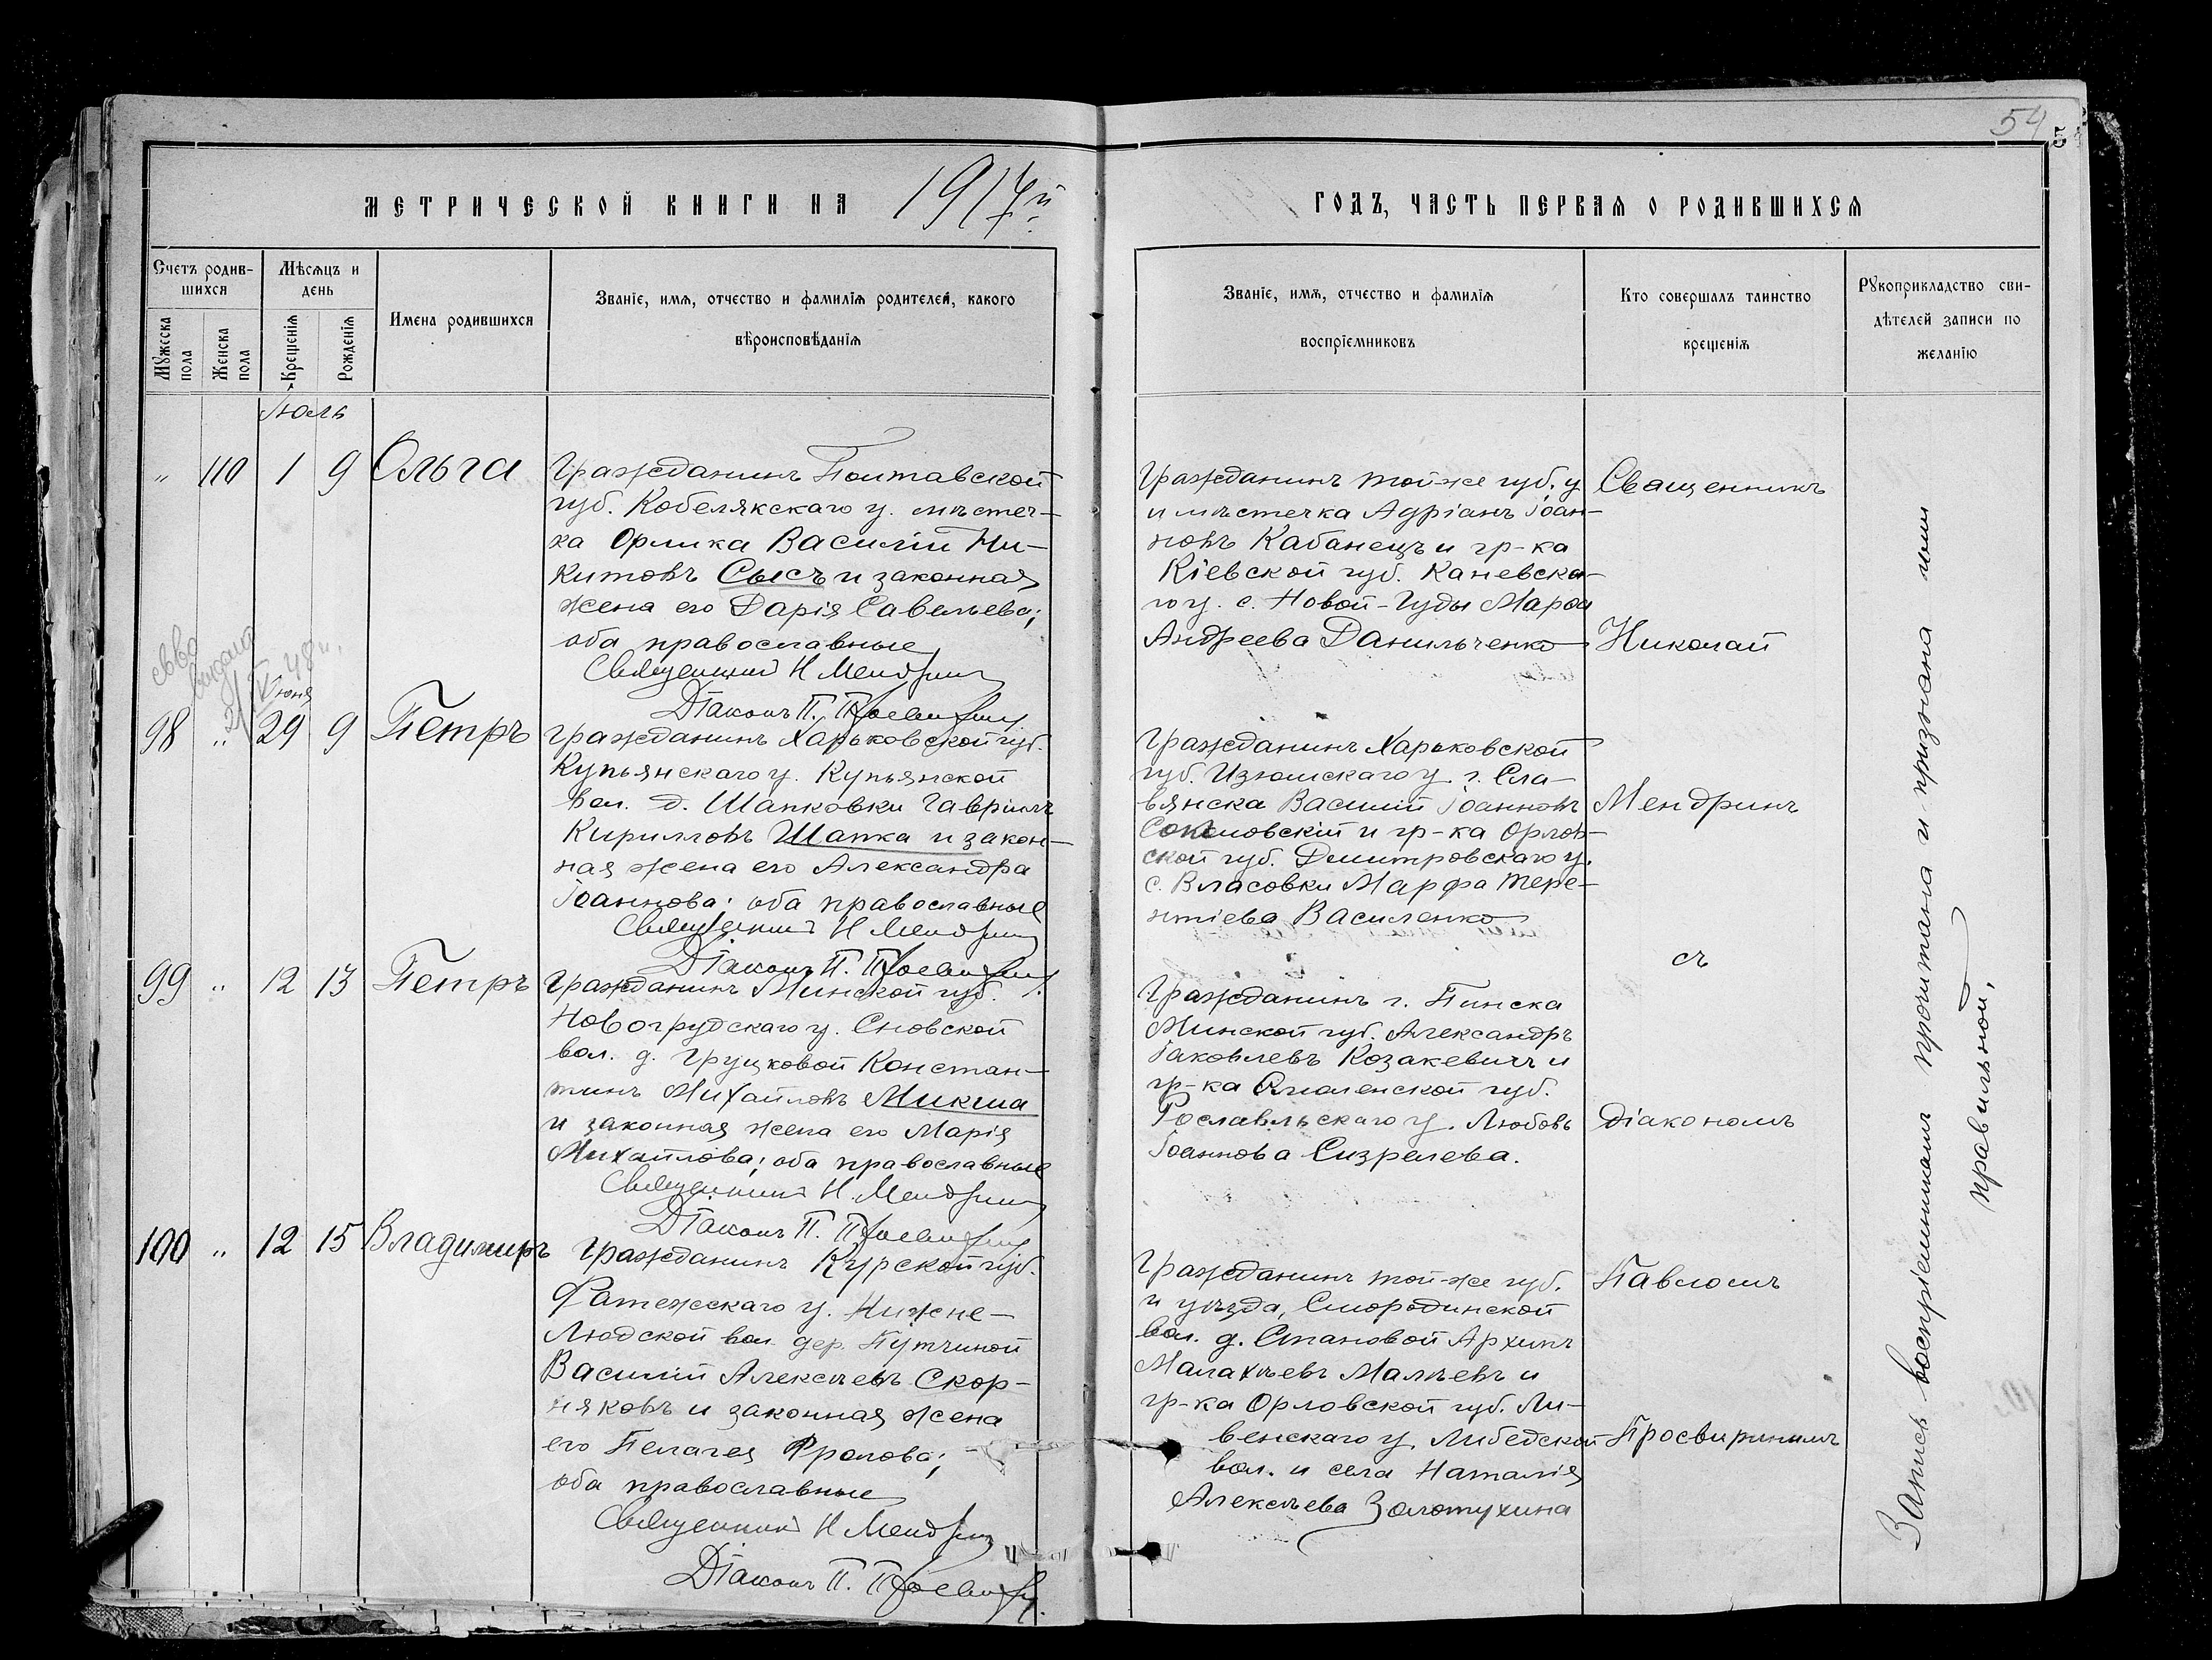 54
5
МЕТРИЧЕСКОЙ КНИГИ НА 1917й
ГОДЪ, ЧАСТЬ ПЕРВАЯ О РОДИВШИХСЯ
Счетъ родив-
шихся
Мужеска пола
Женска пола
Мѣсяцъ и
день
Крещенія
Рожденія
Имена родившихся
Званіе, имя, отчество и фамилія родителей, какого
вѣроисповѣданія
Званіе, имя, отчество и фамилія
воспріемниковъ
Кто совершалъ таинство
крещенія
Рукоприкладство сви-
дѣтелей записи по
желанію
Июль
" 110 1 9 Ольга
Гражданинъ Полтавской
губ. Кобелякскаго у. мѣстеч-
ка Орлика Василій Ни-
китовъ Сысъ и законная
жена его Дарія Савельева;
оба православные
Священникъ Н Мендринъ
Діаконъ П. Просвиринъ
Гражданинъ той-же губ. у
и мѣстечка Адріанъ Іоан-
новъ Кабанецъ и гр-ка
Кіевской губ. Каневска-
го у. с. Новой-Гуды Марѳа
Андреева Данильченко
Священникъ
Николай
Мендринъ
съ
діакономъ
Павломъ
Просвиринымъ
48 г.
Июня
98 " 29 9 Петръ
Гражданинъ Харьковской губ.
Купьянскаго у. Купьянской
вол. д. Шапковки Гавріилъ
Кирилловъ Шапка и закон-
ная жена его Александра
Іоаннова; оба православные
Священникъ Н Мендринъ
Діаконъ П. Просвиринъ
Гражданинъ Харьковской
губ. Изюмскаго у. г. Сла-
вянска Василій Іоанновъ
Соколовскій и гр-ка Орлов-
ской губ. Дмитровскаго у.
с. Власовки Марфа Тере-
нтіева Василенко
99 " 12 13 Петръ
Гражданинъ Минской губ.
Новогрудскаго у. Сновской
вол. д. Грушковой Констан-
тинъ Михайловъ Микша
и законная жена его Марія
Михайлова; оба православные
Священникъ Н. Мендринъ
Діаконъ П. Просвиринъ
Гражданинъ г. Пинска
Минской губ. Александръ
Іаковлевъ Козакевичъ и
гр-ка Смоленской губ.
Рославльскаго у. Любовь
Іоаннова Сизрелева.
100 " 12 15 Владимиръ
Гражданинъ Курской губ.
Фатежскаго у. Нижне-
Людской вол. дер. Путчиной
Василій Алексѣевъ Скор-
няковъ и законная жена
его Пелагея Фролова;
оба православные
Священникъ Н Мендринъ
Діаконъ П. Просвиринъ
Гражданинъ той-же губ.
и уѣзда, Смородинской
вол. д. Становой Архипъ
Малахѣевъ Малѣевъ и
гр-ка Орловской губ. Ли-
венскаго у. Либедской
вол. и села Наталія
Алексѣева Золотухина
Запись воспріемниками прочитана и признана ими
правильной.